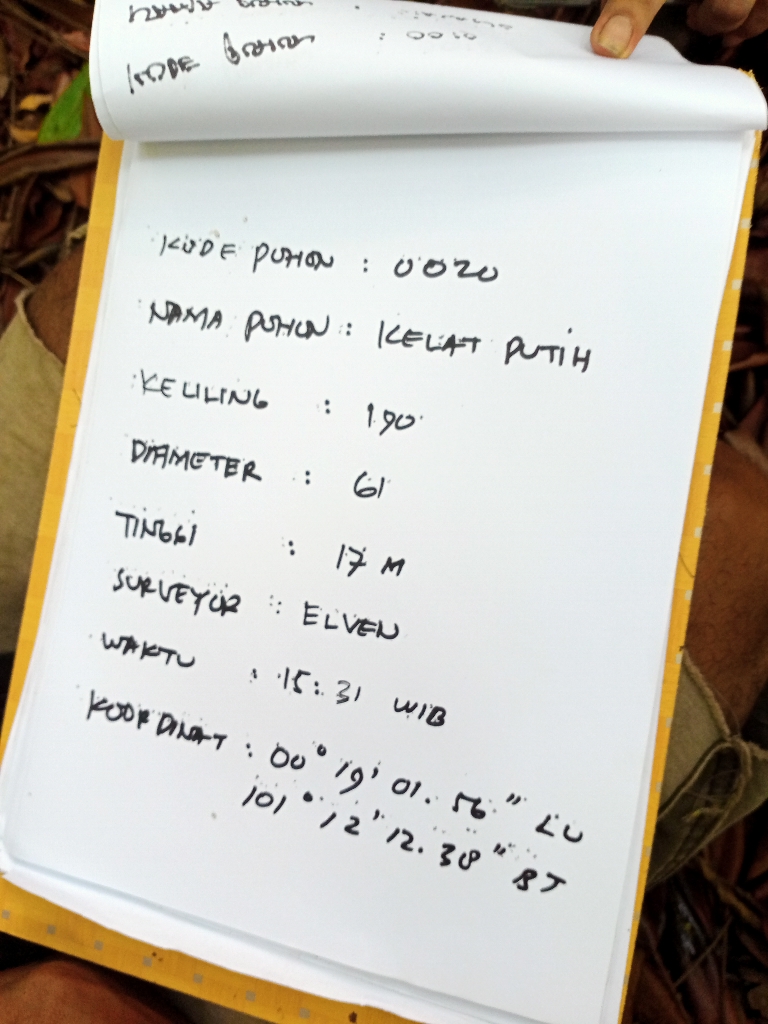 KODE POHON
KODE POHON : 0020
NAMA POHON : KELAT PUTIH
KELILING : 190
DIAMETER : 61
TINGGI : 17 M
SURVEYOR : ELVEN
WAKTU : 15:31 WIB
KOORDINAT : 00° 19' 01.56" LU
101° 12' 12.38" BT